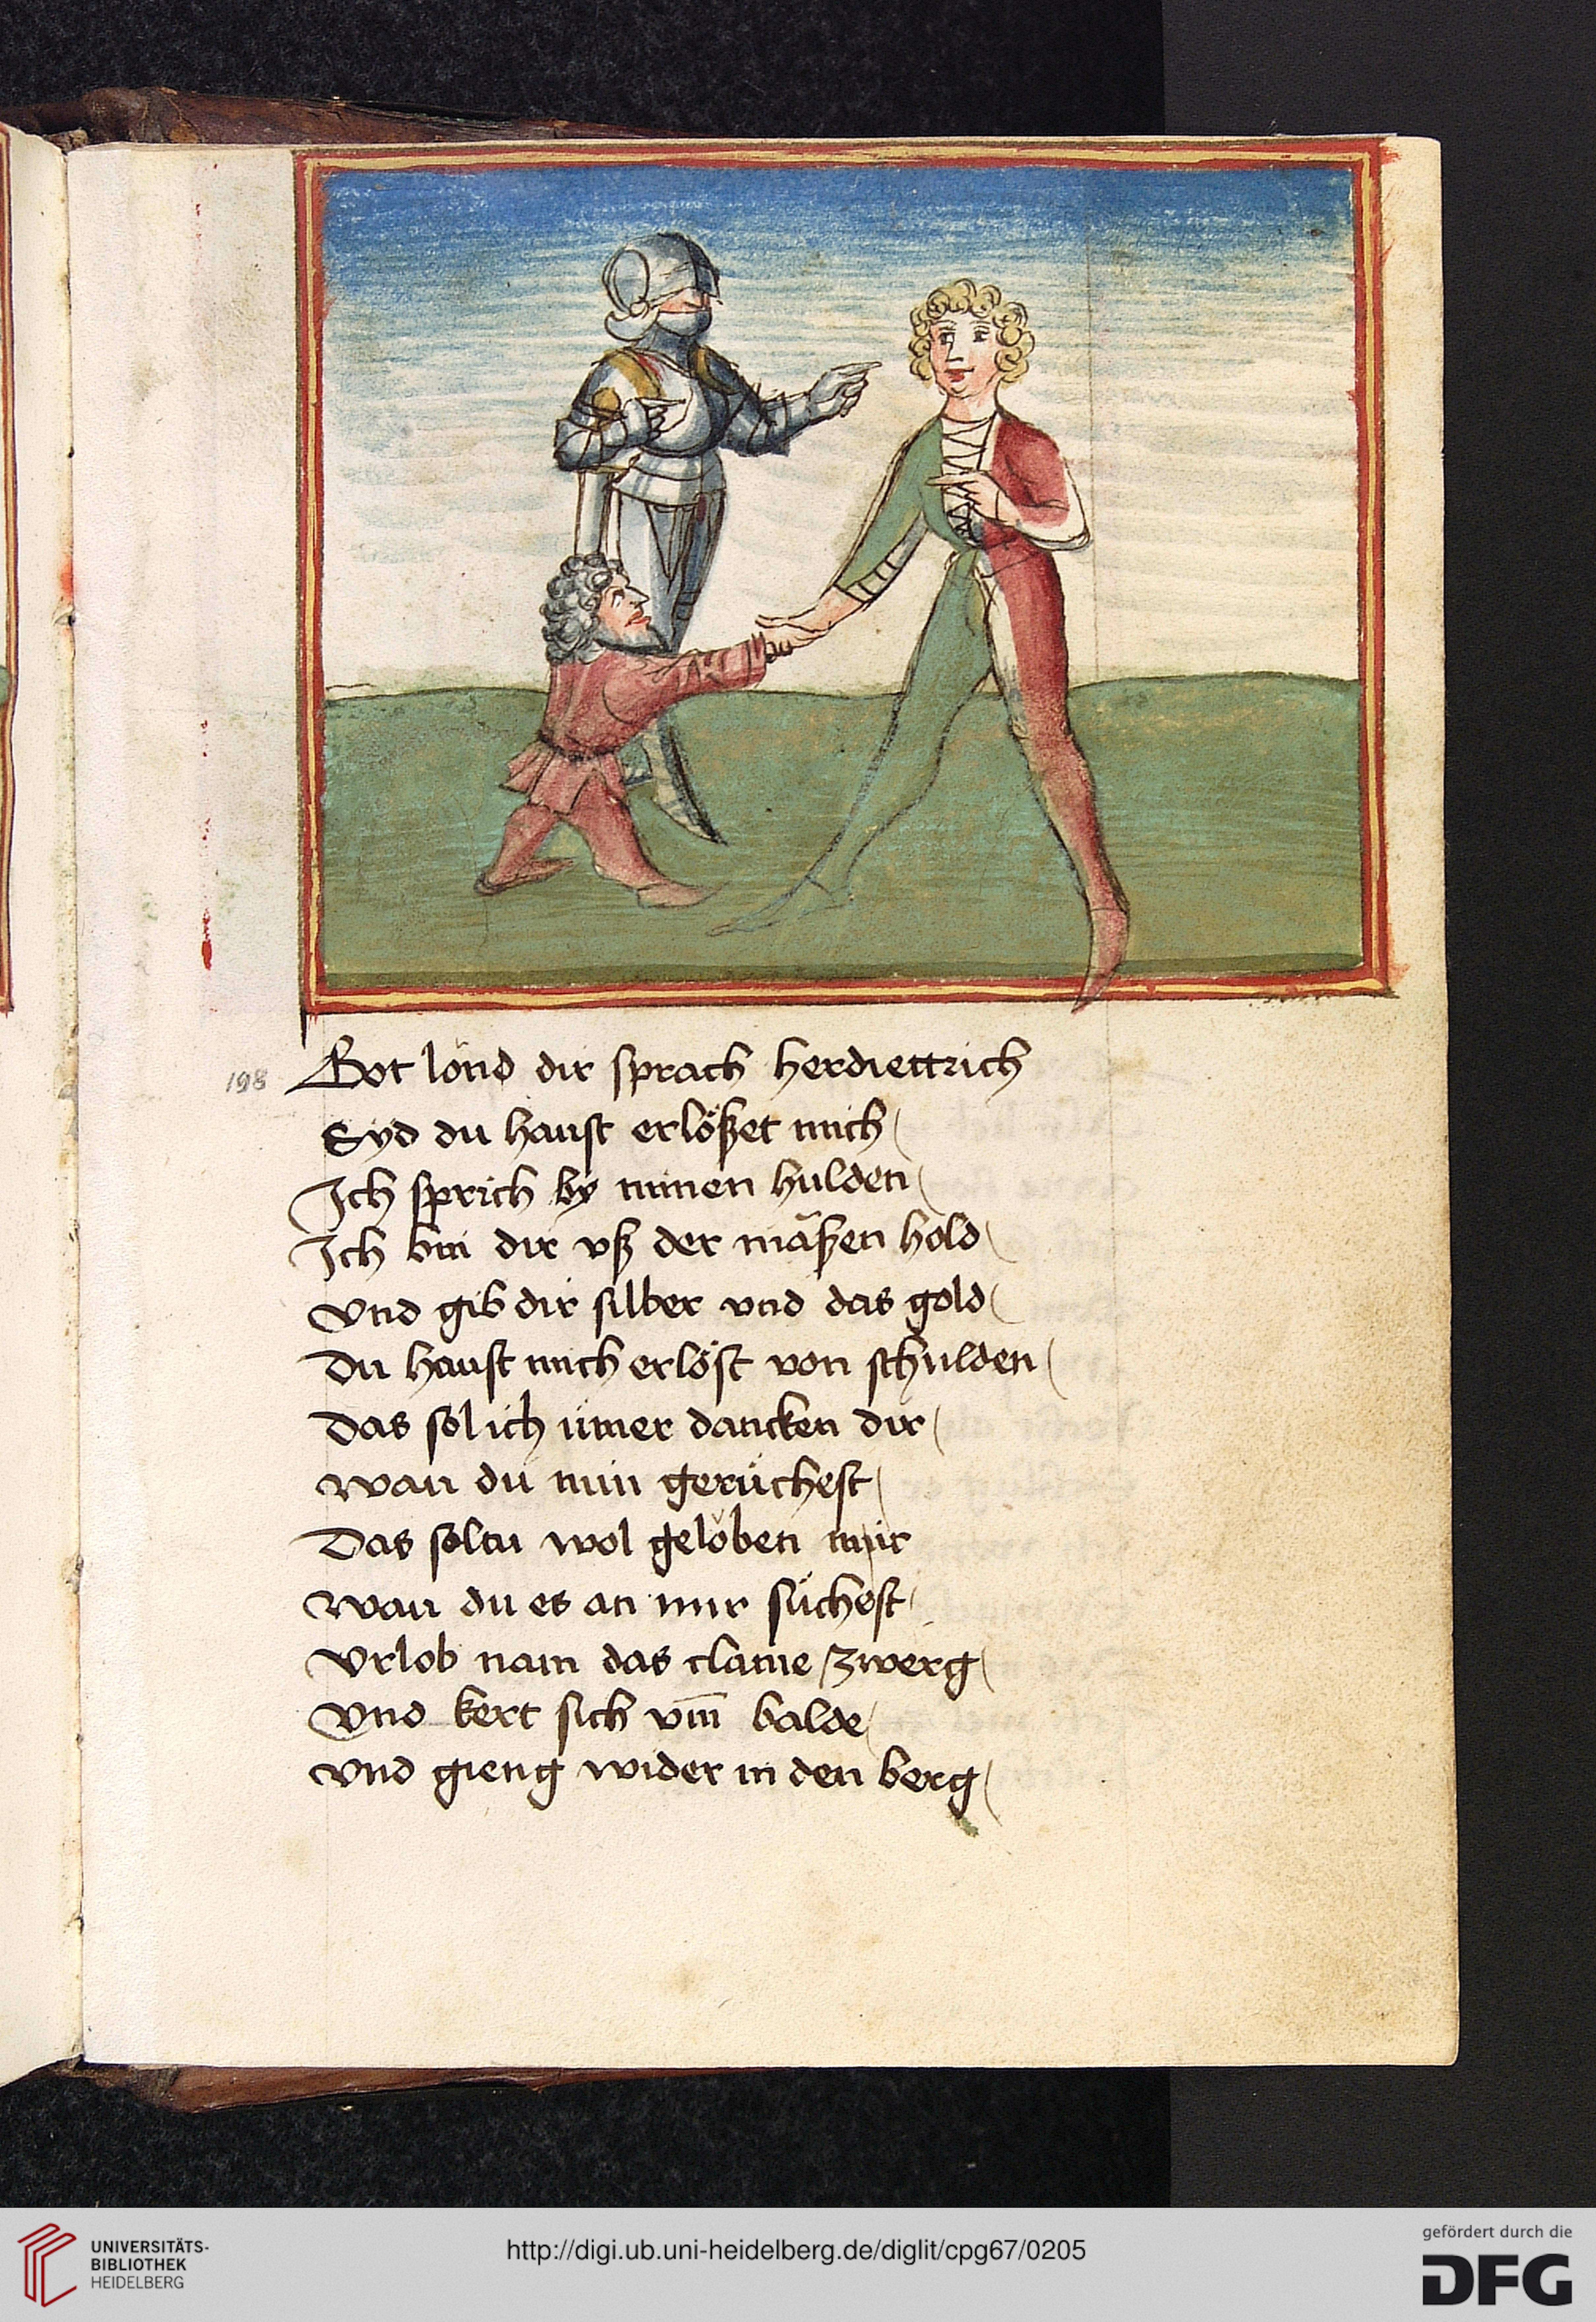 198
Got lönd dir sprach herdiettrich
Syd du haust erlößet mich
Ich sprich by minen hulden
Ich bin dir vß der mäßen hold
vnd gib dir silber vnd das gold
Du haust mich erlöst von schulden
Das sol ich ümer dancken dir
wan du min gerüchest
Das soltu wol geloben mir
wan du es an mir süchest
Vrlob nam das claine zwerg
Vnd kert sich vm̅ balde
vnd gieng wider in den berg
UNIVERSITÄTS-
BIBLIOTHEK
HEIDELBERG
http://digi.ub.uni-heidelberg.de/diglit/cpg67/0205
gefördert durch die
DFG